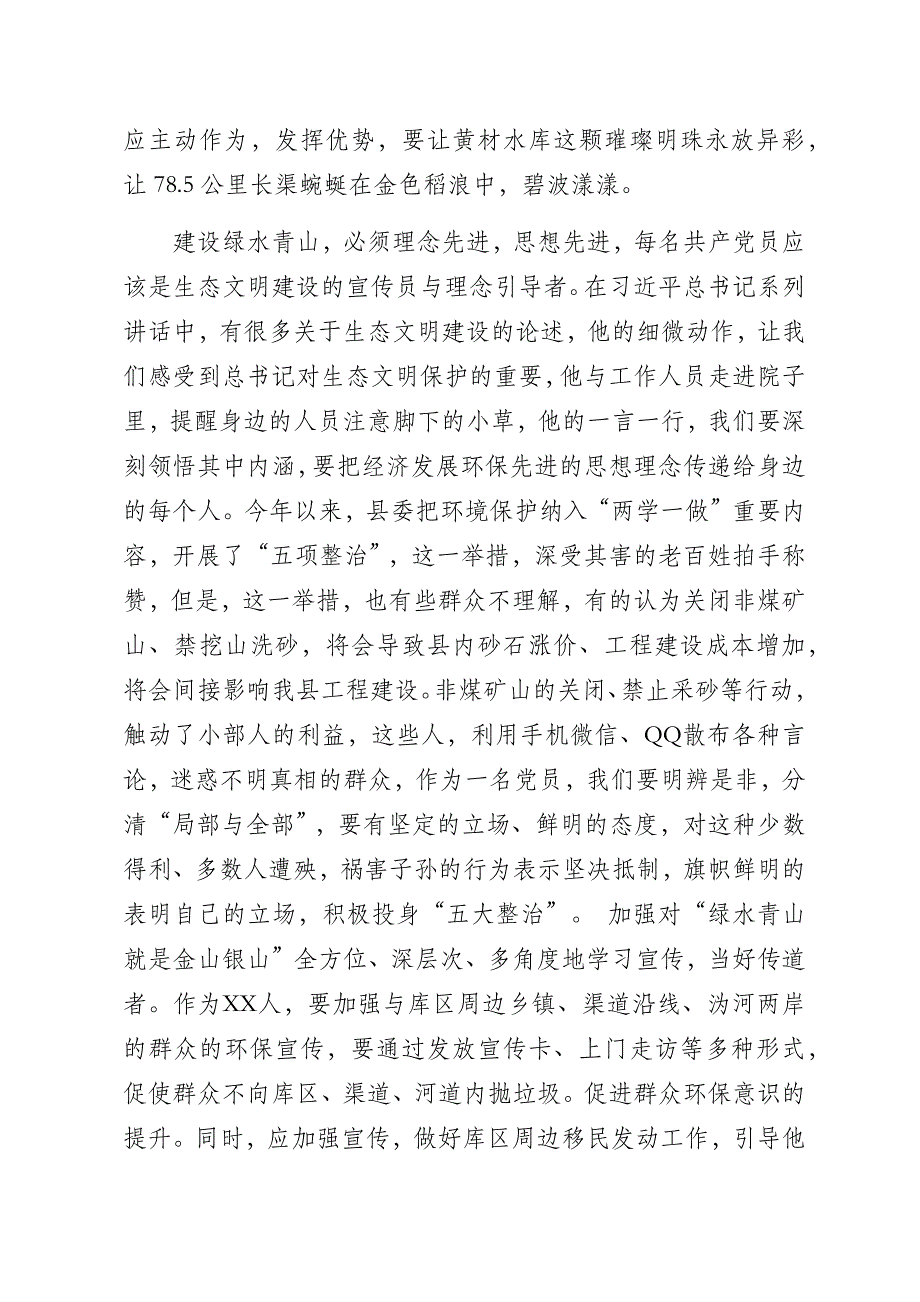 应主动作为，发挥优势，要让黄材水库这颗璀璨明珠永放异彩，
让 78.5 公里长渠蜿蜒在金色稻浪中，碧波漾漾。
建设绿水青山，必须理念先进，思想先进，每名共产党员应
该是生态文明建设的宣传员与理念引导者。在习近平总书记系列
讲话中，有很多关于生态文明建设的论述，他的细微动作，让我
们感受到总书记对生态文明保护的重要，他与工作人员走进院子
里，提醒身边的人员注意脚下的小草，他的一言一行，我们要深
刻领悟其中内涵，要把经济发展环保先进的思想理念传递给身边
的每个人。今年以来，县委把环境保护纳入“两学一做”重要内
容，开展了“五项整治”，这一举措，深受其害的老百姓拍手称
赞，但是，这一举措，也有些群众不理解，有的认为关闭非煤矿
山、禁挖山洗砂，将会导致县内砂石涨价、工程建设成本增加，
将会间接影响我县工程建设。非煤矿山的关闭、禁止采砂等行动，
触动了小部人的利益，这些人，利用手机微信、QQ散布各种言
论，迷惑不明真相的群众，作为一名党员，我们要明辨是非，分
清“局部与全部”，要有坚定的立场、鲜明的态度，对这种少数
得利、多数人遭殃，祸害子孙的行为表示坚决抵制，旗帜鲜明的
表明自己的立场，积极投身“五大整治”。 加强对“绿水青山
就是金山银山”全方位、深层次、多角度地学习宣传，当好传道
者。作为XX人，要加强与库区周边乡镇、渠道沿线、沩河两岸
的群众的环保宣传，要通过发放宣传卡、上门走访等多种形式，
促使群众不向库区、渠道、河道内抛垃圾。促进群众环保意识的
提升。同时，应加强宣传，做好库区周边移民发动工作，引导他